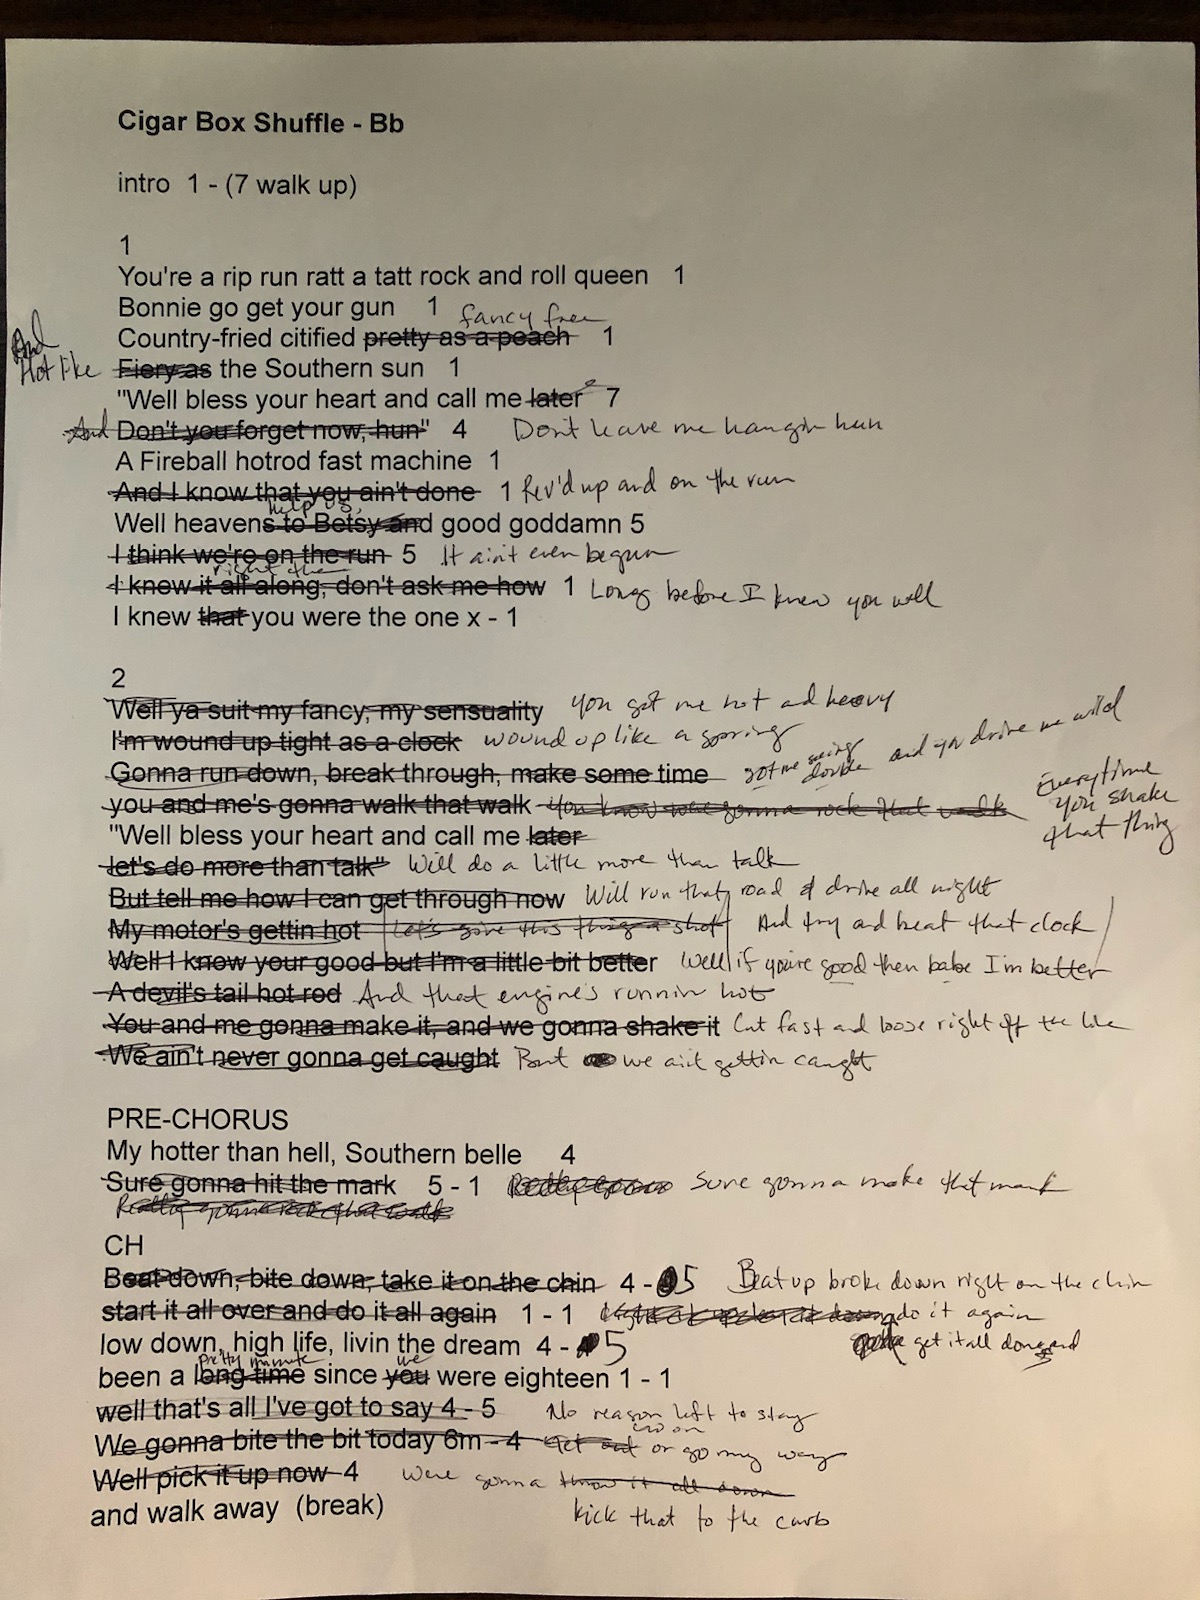 Cigar Box Shuffle - Bb
intro 1 - (7 walk up)
1
You're a rip run ratt a tatt rock and roll queen 1
Bonnie go get your gun 1
fancy free
Country-fried citified pretty as a peach 1
And
Hot like Fiery as the Southern sun 1
"Well bless your heart and call me later 7
And Don't you forget now, hun" 4 Don't leave me hangin hun
A Fireball hotrod fast machine 1
And I know that you ain't done 1 Rev'd up and on the run
help us,
Well heavens to Betsy and good goddamn 5
I think we're on the run 5 It ain't even begun
right then
I knew it all along, don't ask me how 1 Long before I knew you well
I knew that you were the one x - 1
2
Well ya suit my fancy, my sensuality you got me hot and heavy
I'm wound up tight as a clock wound up like a spring
Gonna run down, break through, make some time got me seeing double and you drive me wild
you and me's gonna walk that walk you know were gonna rock that walk Everytime
you shake
that thing
"Well bless your heart and call me later
let's do more than talk" Will do a little more than talk
But tell me how I can get through now Will run that road & drive all night
My motor's gettin hot Let's give this thing a shot And try and beat that clock
Well I know your good but I'm a little bit better Well if you're good then babe I'm better
A devil's tail hot rod And that engine's runnin hot
You and me gonna make it, and we gonna shake it Cut fast and loose right off the line
We ain't never gonna get caught But we ain't gettin caught
PRE-CHORUS
My hotter than hell, Southern belle 4
Sure gonna hit the mark 5 - 1 Sure gonna make that mark
Really gonna rock that walk
CH
Beat down, bite down, take it on the chin 4 - 5 Beat up broke down right on the chin
start it all over and do it all again 1 - 1 do it again
low down, high life, livin the dream 4 - 5 get it all done and
pretty minute we
been a long time since you were eighteen 1 - 1
well that's all I've got to say 4 - 5 No reason left to stay
We gonna bite the bit today 6m - 4 Get out or go my way
Well pick it up now 4 were gonna throw it all down
and walk away (break) kick that to the curb